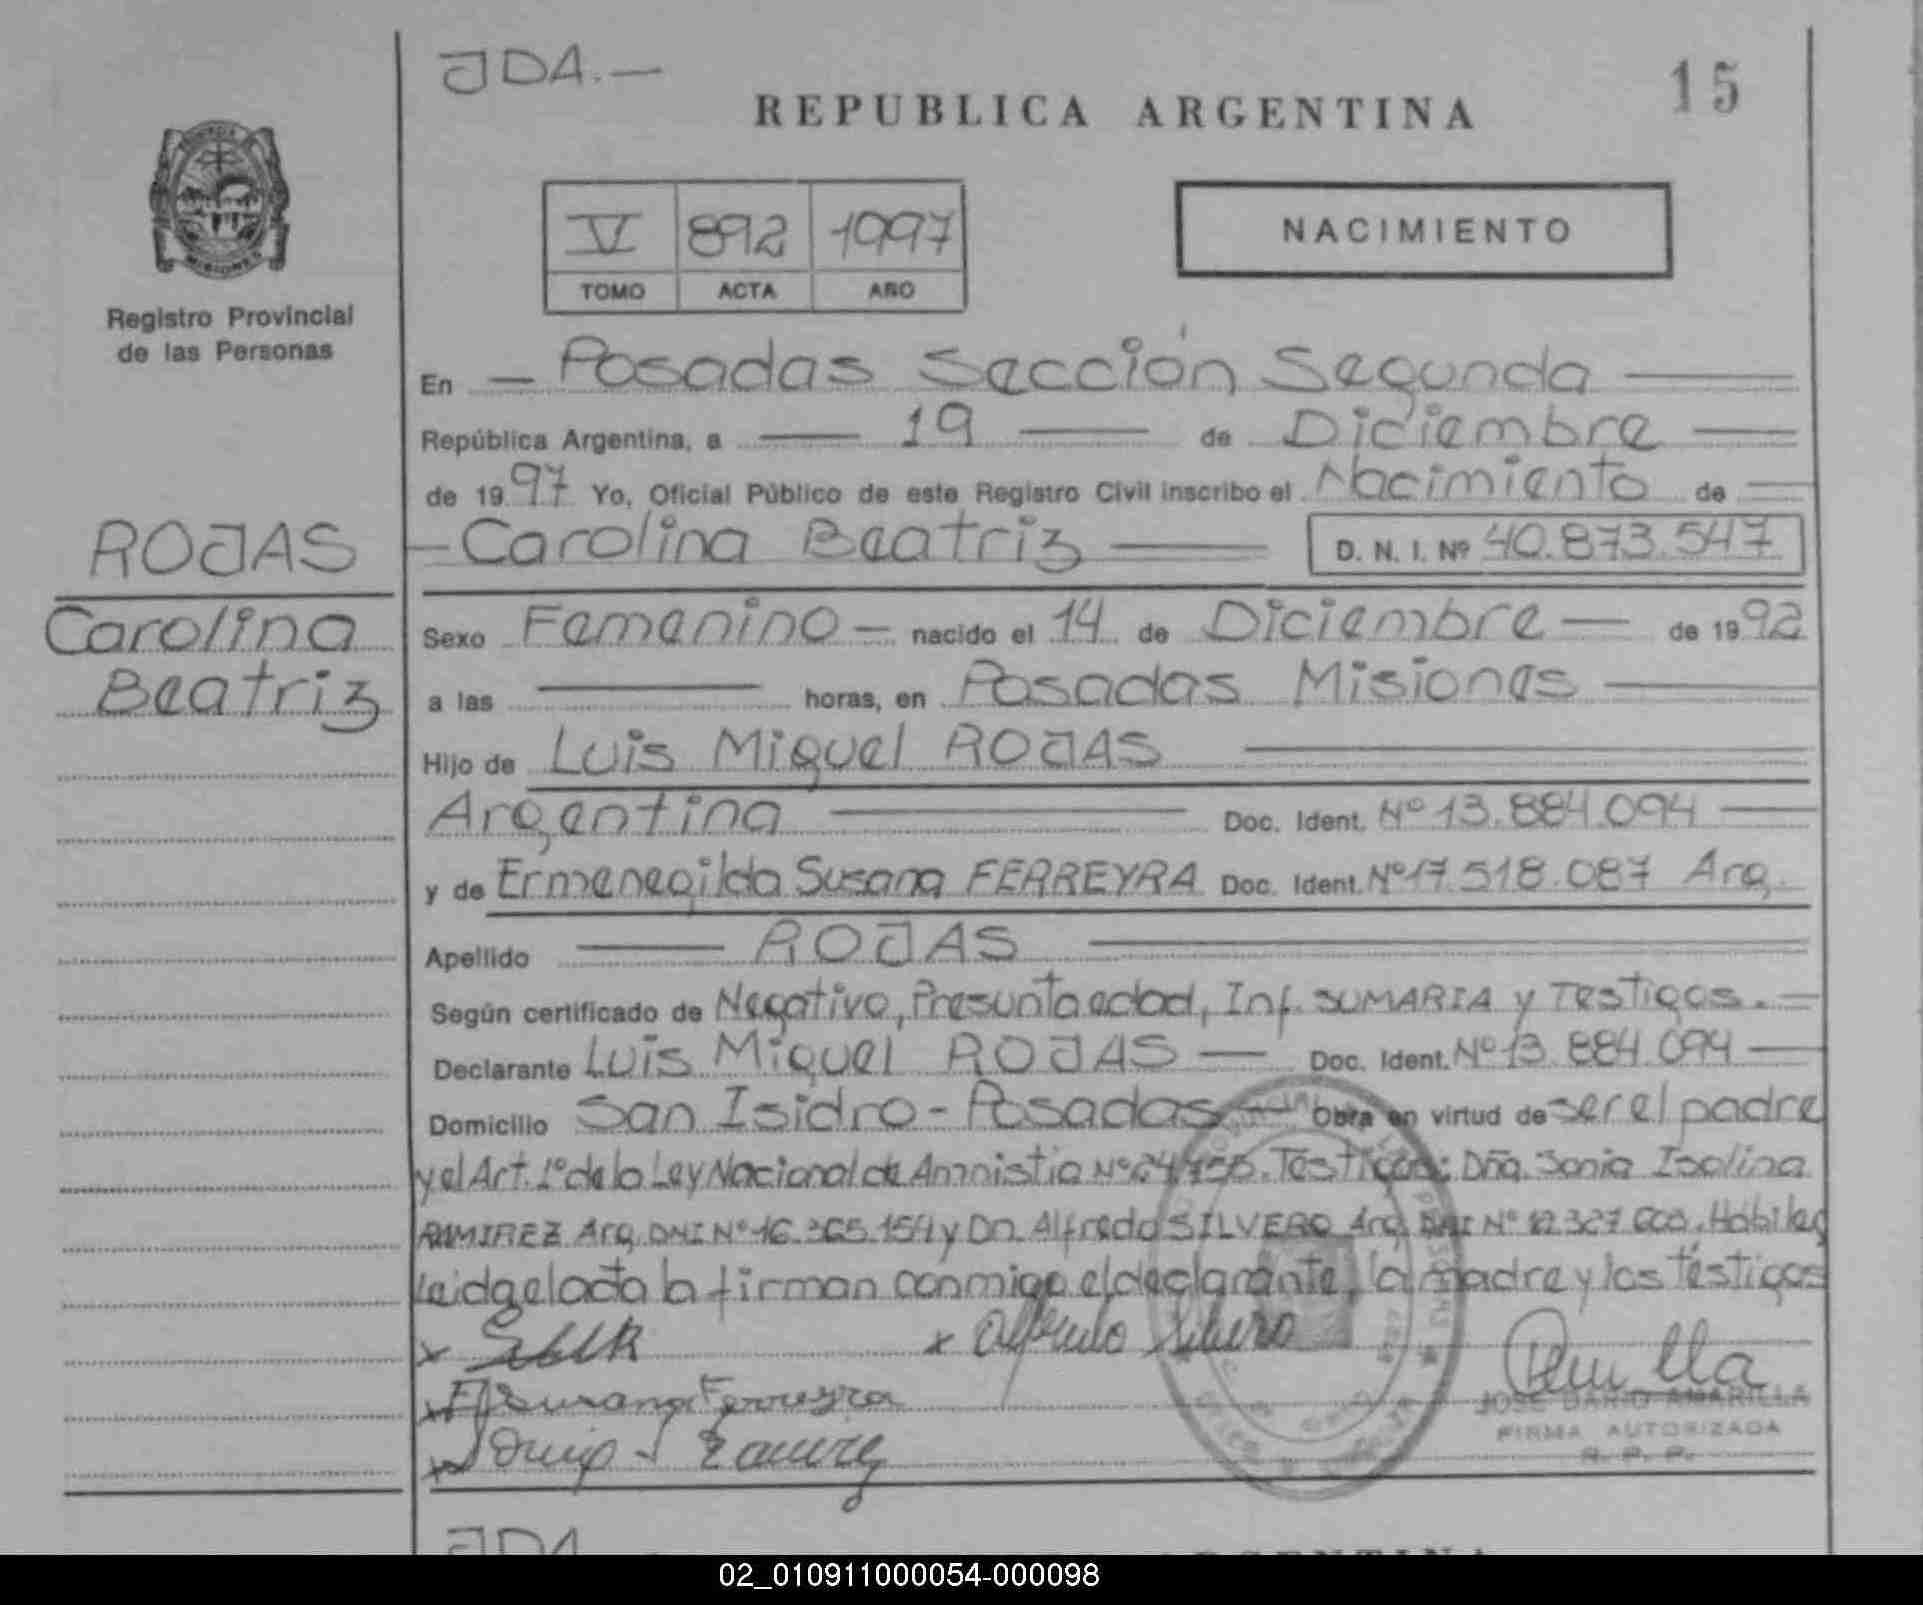 JDA.—
15
REPUBLICA ARGENTINA
V 892 1997
TOMO ACTA AÑO
NACIMIENTO
MISIONES
Registro Provincial
de las Personas
En — Posadas Sección Segunda —
República Argentina, a — 19 — de Diciembre —
de 1997 Yo, Oficial Público de este Registro Civil inscribo el Nacimiento de —
— Carolina Beatriz — D. N. I. Nº 40.873.547
ROJAS
Carolina
Beatriz
Sexo Femenino — nacido el 14 de Diciembre — de 1992
a las — horas, en Posadas Misiones —
Hijo de Luis Miguel ROJAS —
Argentina — Doc. Ident. Nº 13.884.094 —
y de Ermenegilda Susana FERREYRA Doc. Ident. Nº 17.518.087 Arg.
Apellido — ROJAS —
Según certificado de Negativo, Presunta edad, Inf. SUMARIA y Testigos. —
Declarante Luis Miguel ROJAS — Doc. Ident. Nº 13.884.094 —
Domicilio San Isidro - Posadas — Obra en virtud de ser el padre
y el Art. 1º de la Ley Nacional de Amnistia Nº Testigos: Dña. Sonia Isolina
RAMIREZ Arg. DNI Nº 16.365.154 y Dn. Alfredo SILVERO Arg. DNI Nº Hábiles
Leidgelacta la firman conmigo el declarante, la madre y los testigos
x x Alfredo Silvero
x Susana Ferreyra
x Sonia I Ramirez
JOSE DARIO AMARILLA
FIRMA AUTORIZADA
R. P. P.
JDA
ARGENTINA
02_010911000054-000098